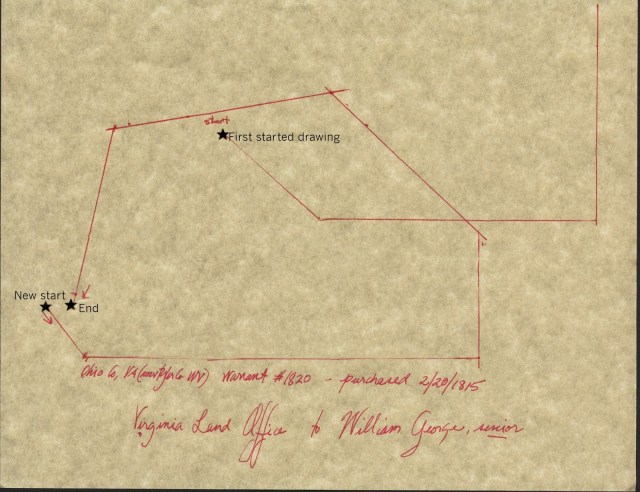 start
First started drawing
New start
End
Ohio Co, VA (now Tyler Co WV) Warrant #1820 - purchased 2/20/1815
Virginia Land Office to William George, senior